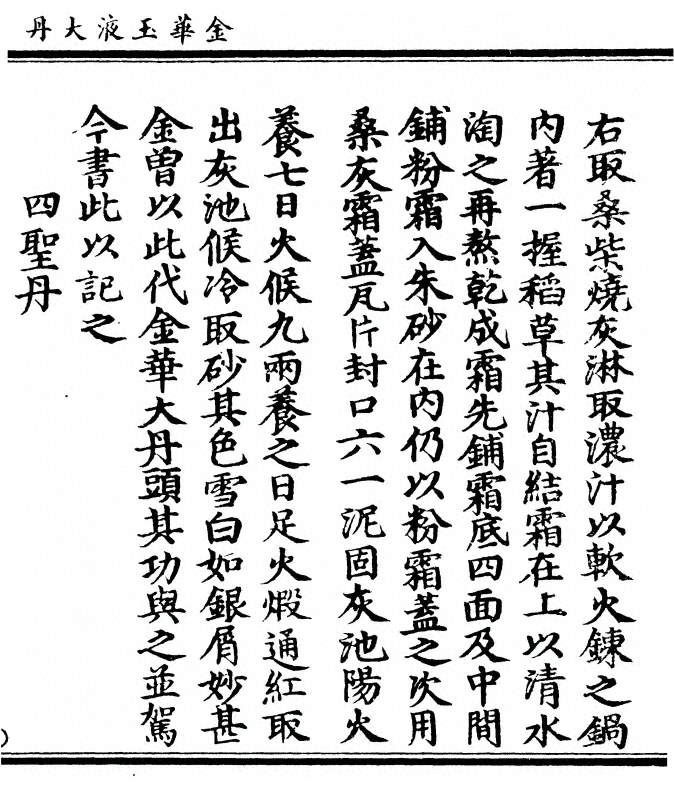 金華玉液大丹
右取桑柴燒灰淋取濃汁以軟火鍊之鍋
內著一握稻草其汁自結霜在上以清水
淘之再熬乾成霜先鋪霜底四面及中間
鋪粉霜入朱砂在內仍以粉霜蓋之次用
桑灰霜蓋瓦片封口六一泥固灰池陽火
養七日火候九兩養之日足火煅通紅取
出灰池候冷取砂其色雪白如銀屑妙甚
金曾以此代金華大丹頭其功與之並駕
今書此以記之
四聖丹